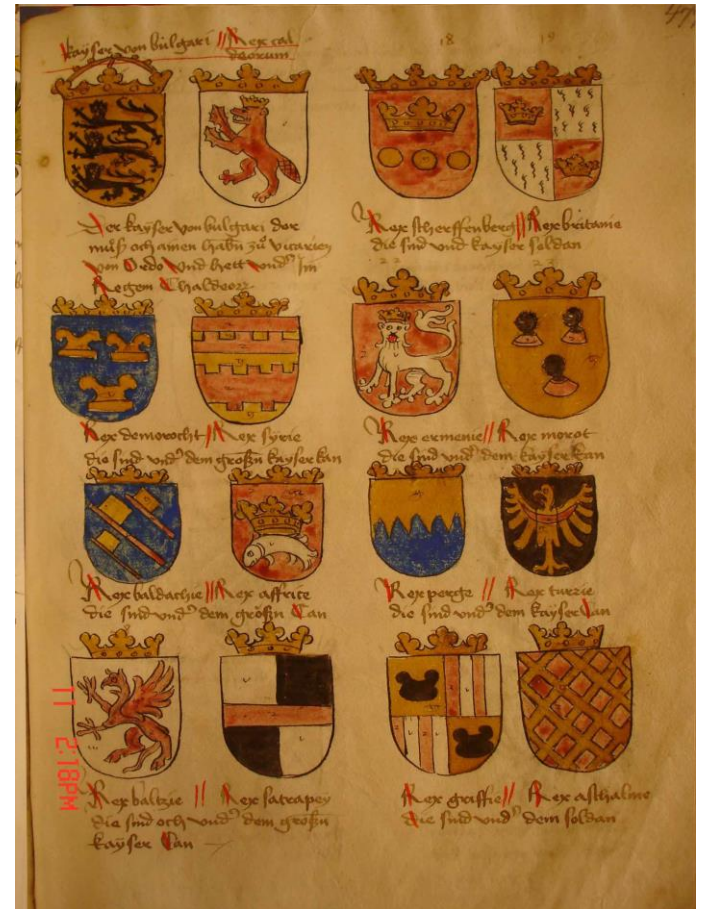 47
kayser von bulgari // Rex cal
deorum
18 19
Der kayser von bulgari der
och amen habn zu vicarien
von Ordo Und hett Im
Regem Chaldeor
Rex scherffenberg // Rex britanie
die sind und kayser soldan
22 23
Rex demorocht // Rex syrie
die sind und dem großn kayser kan
Rex ermenie // Rex morot
die sind und dem kayser kan
Rex baldachie // Rex affrice
die sind und dem größn Can
Rex perge // Rex turzie
die sind und dem kayser Can
Rex baltzie // Rex satrapey
die sind och und dem großn
kayser Can
Rex griffie // Rex asthalme
die sind und dem soldan
11 2:18PM